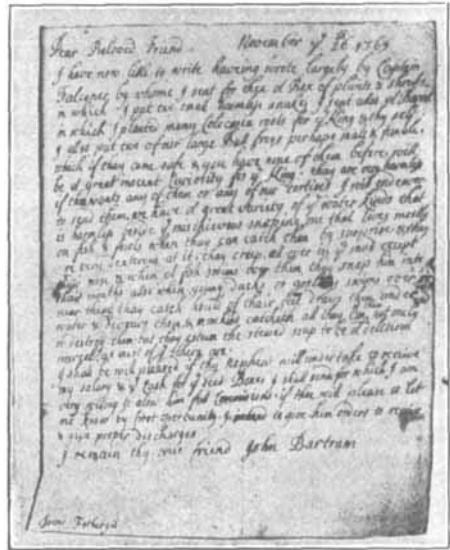 Dear Beloved Friend. November yᵉ 26 1769
I have now litle to write haveing wrote largely by Captain
Falconer by whome I sent for thee a Box of plants & shrubs
in which I put two small harmless snakes I sent also yᵉ
in which I planted many Colocasia roots for yᵉ King & thy self
I also put two of our large Bull frogs perhaps male & female
which if they come safe & you have none of them before, will
be a great Curiosity for yᵉ King they are
if thee wants any of them or any of our tortises I will endeavor
to send them, we have a great variety of yᵉ water kinds that
is harmless yᵉ mischievous snaping one that lives mostly
on fish & fowls when they can catch them by surprise
all over in yᵉ mud except
nose & when a fish swims by then they snap him into
their mouths also when young Ducks or swims over
near them they catch hould of their feet draws them under
water & devours them & catcheth all they can not only
to destroy them but they esteem the stewed soup to be a delicious
morsel as most of yᵉ others are
I shall be well pleased if thy Nephew will undertake to receive
my salary & yᵉ Cash for yᵉ seed Boxes I shall send for which I am
very willing to alow him full Commisions if him will please to let
me know by first opertunity to give him orders to receive
& give proper discharges
I remain thy true friend John Bartram